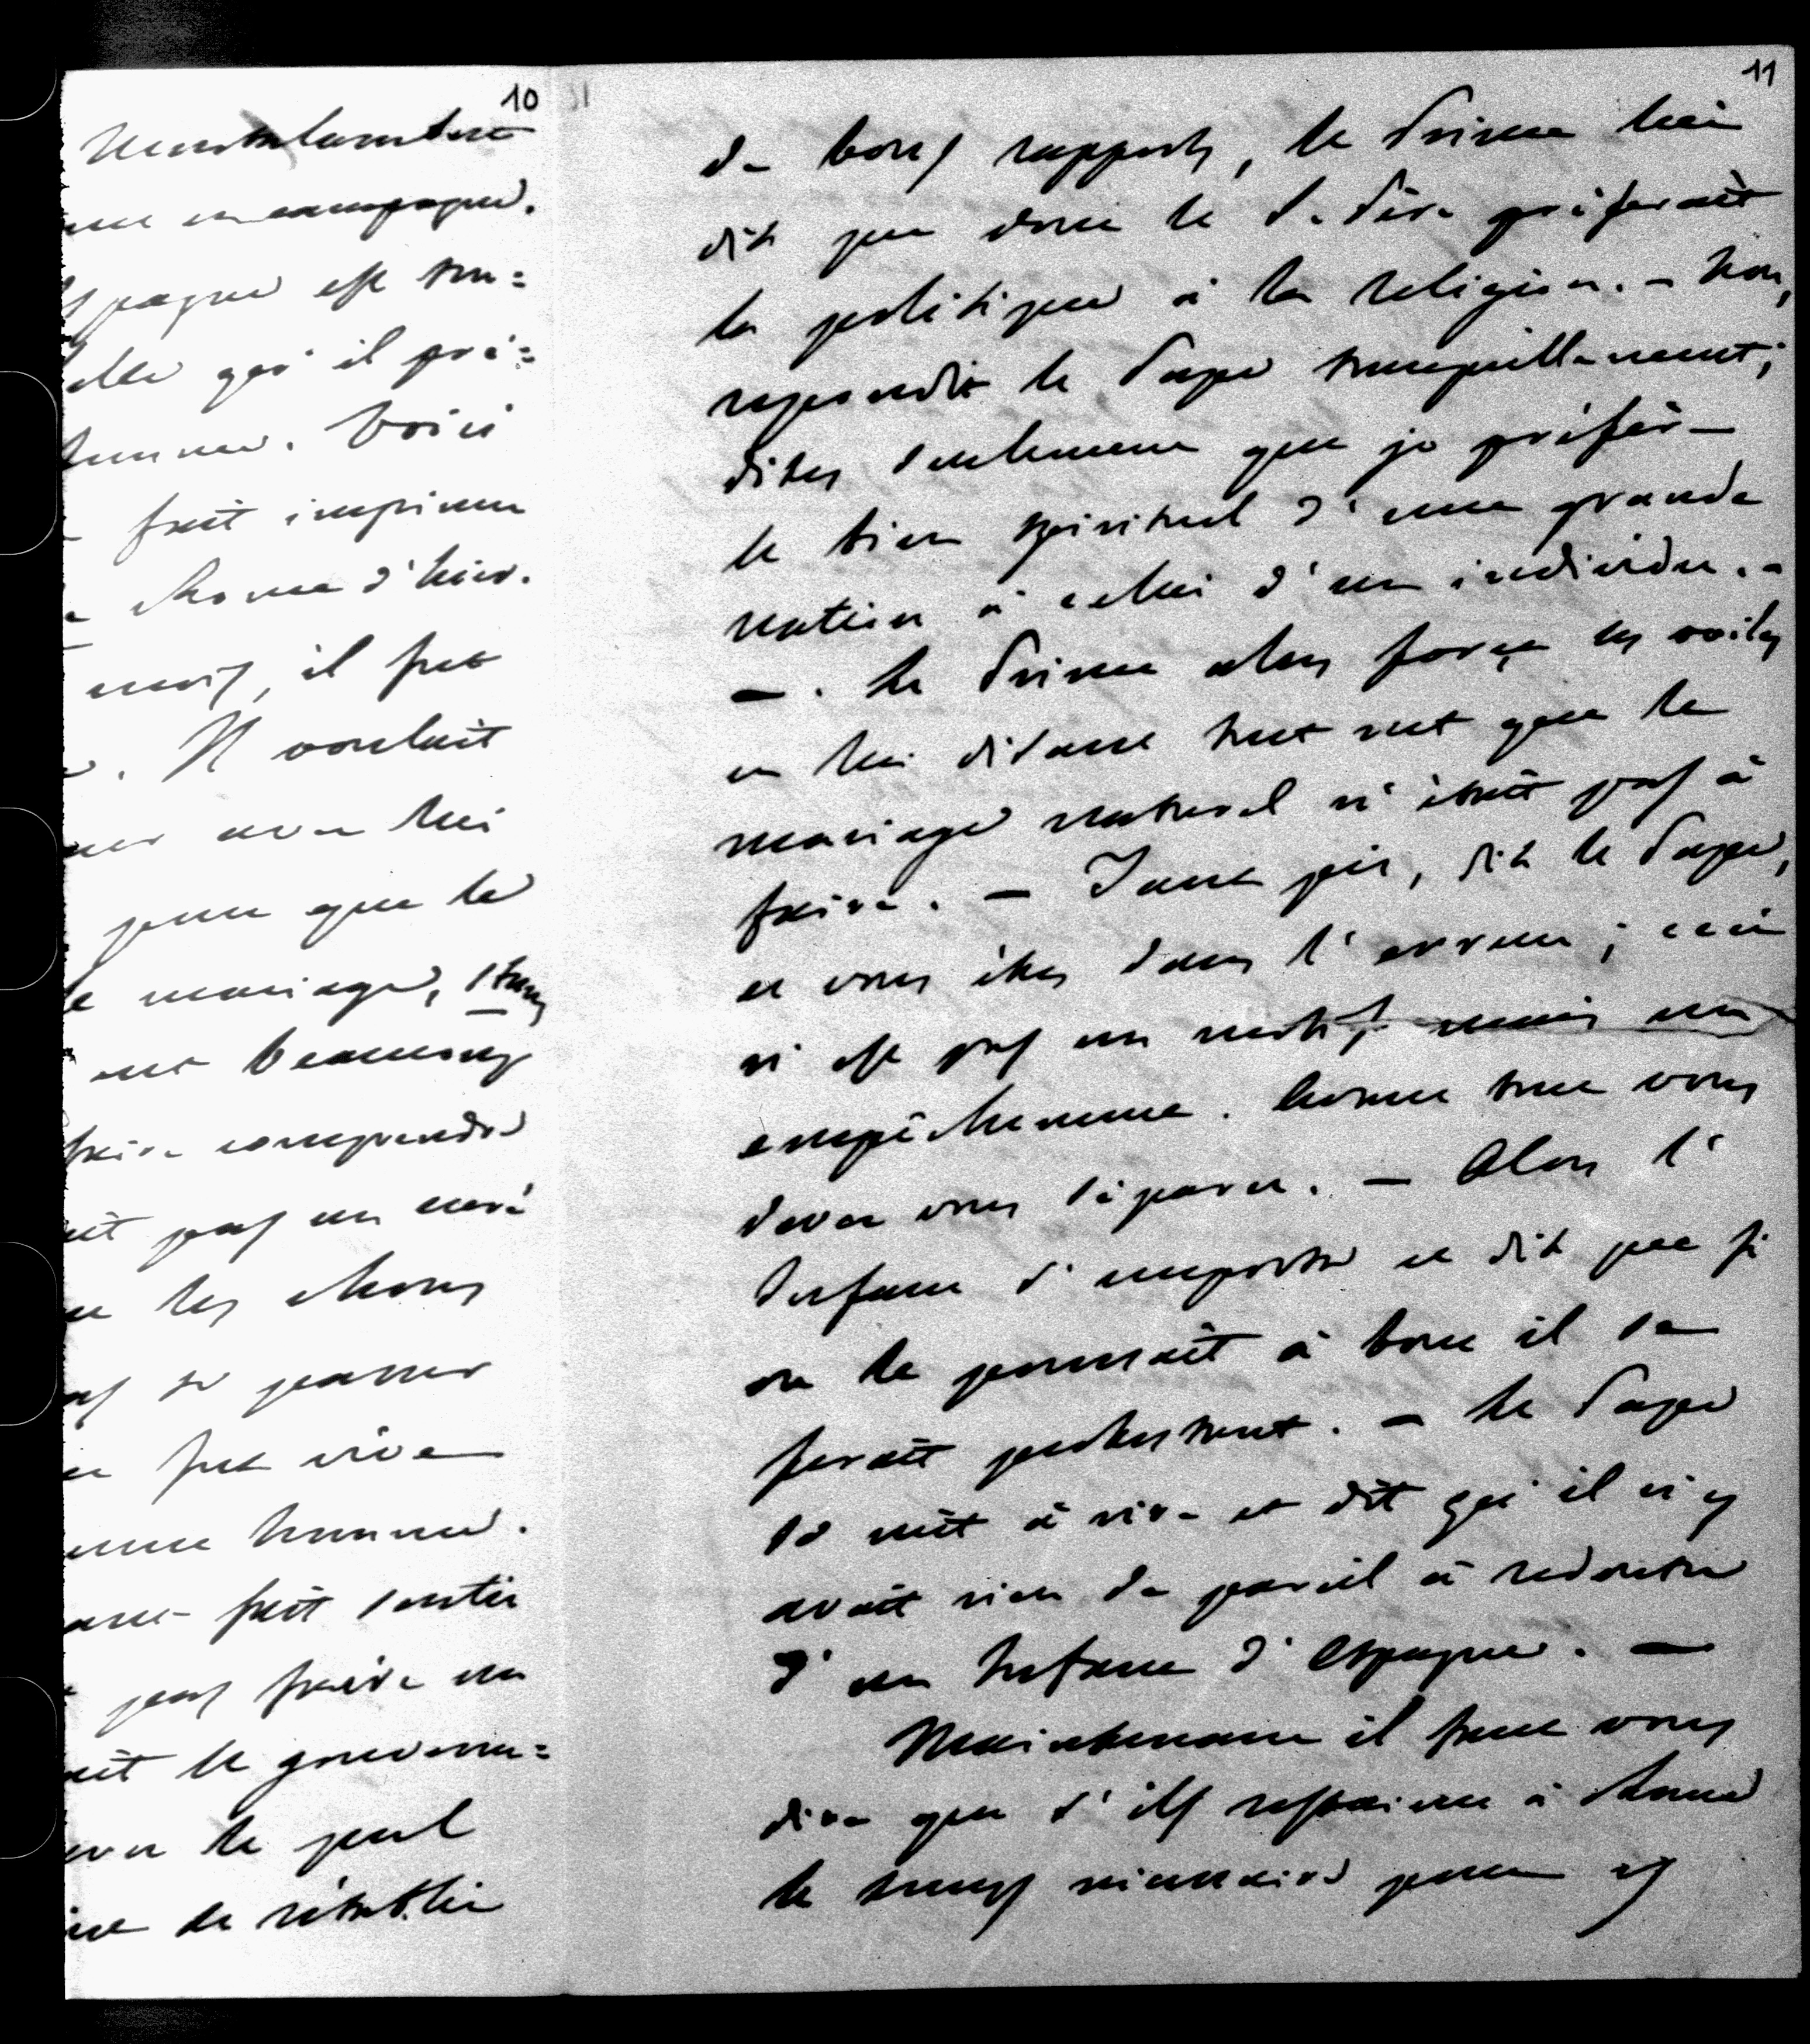 10
Montalembert
en campagne.
Espagne est tou=
elle qu'il pré=
femme. Voici
fait imprimer
chose d'hier.
mois, il fut
Il voulait
avec lui
pour que le
le mariage, étang
ont beaucoup
faire comprendre
ait pas un curé
les choses
pas se passer
fut vive
une femme.
fait sentir
pas faire un
ait le gouverne=
le seul
de rétablir
11
de bons rapports, le Prince lui
dit que donc le S. Père préferait
la politique à la religion. – Non,
repondit le Pape tranquillement;
dites seulement que je préfère
le bien spirituel d'une grande
nation à celui d'un individu. –
– . Le Prince alors força les voiles
en lui disant tout net que le
mariage naturel n'était pas à
faire. – Tant pis, dit le Pape,
et vous êtes dans l'erreur; ceci
n'est pas un motif, mais un
empêchement. Comme tous vous
devez vous séparer. – Alors l'
Infant s'emporta et dit que si
on le poussait à bout il se
ferait protestant. – Le Pape
se mit à rire et dit qu'il n'y
avait rien de pareil à redouter
d'un Infant d'Espagne. –
Maintenant il faut vous
dire que s'ils restaient à Rome
le temps nécessaire pour y